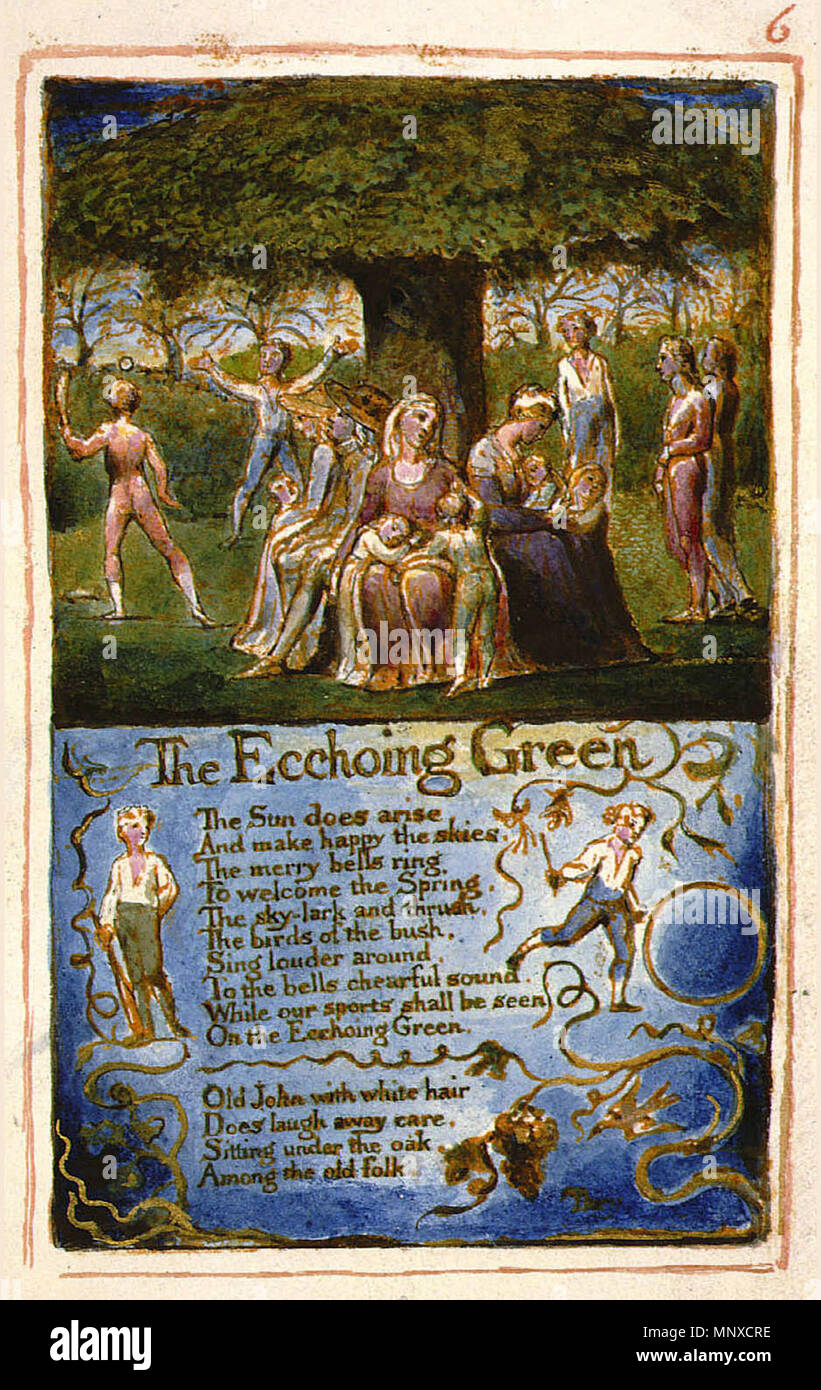 6
The Ecchoing Green
The Sun does arise
And make happy the skies.
The merry bells ring.
To welcome the Spring.
The sky-lark and thrush.
The birds of the bush.
Sing louder around.
To the bells chearful sound.
While our sports shall be seen
On the Ecchoing Green.
Old John with white hair
Does laugh away care.
Sitting under the oak.
Among the old folk
alamy
Image ID: MNXCRE
www.alamy.com